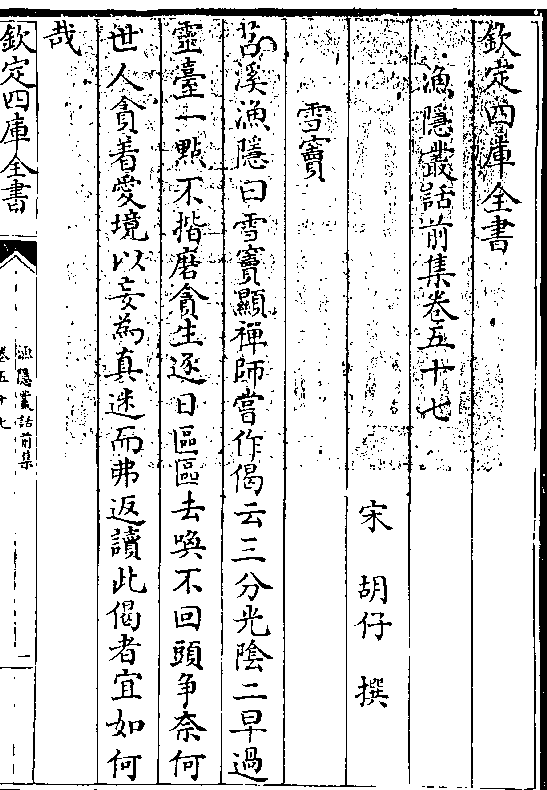 欽定四庫全書
漁隱叢話前集卷五十七
宋 胡仔 撰
雪竇
苕溪漁隱曰雪竇顯禪師嘗作偈云三分光陰二早過
靈臺一點不揩磨貪生逐日區區去喚不回頭争奈何
世人貪着愛境以妄為真迷而弗返讀此偈者宜如何
哉
欽定四庫全書
漁隱叢話前集
卷五十七
一